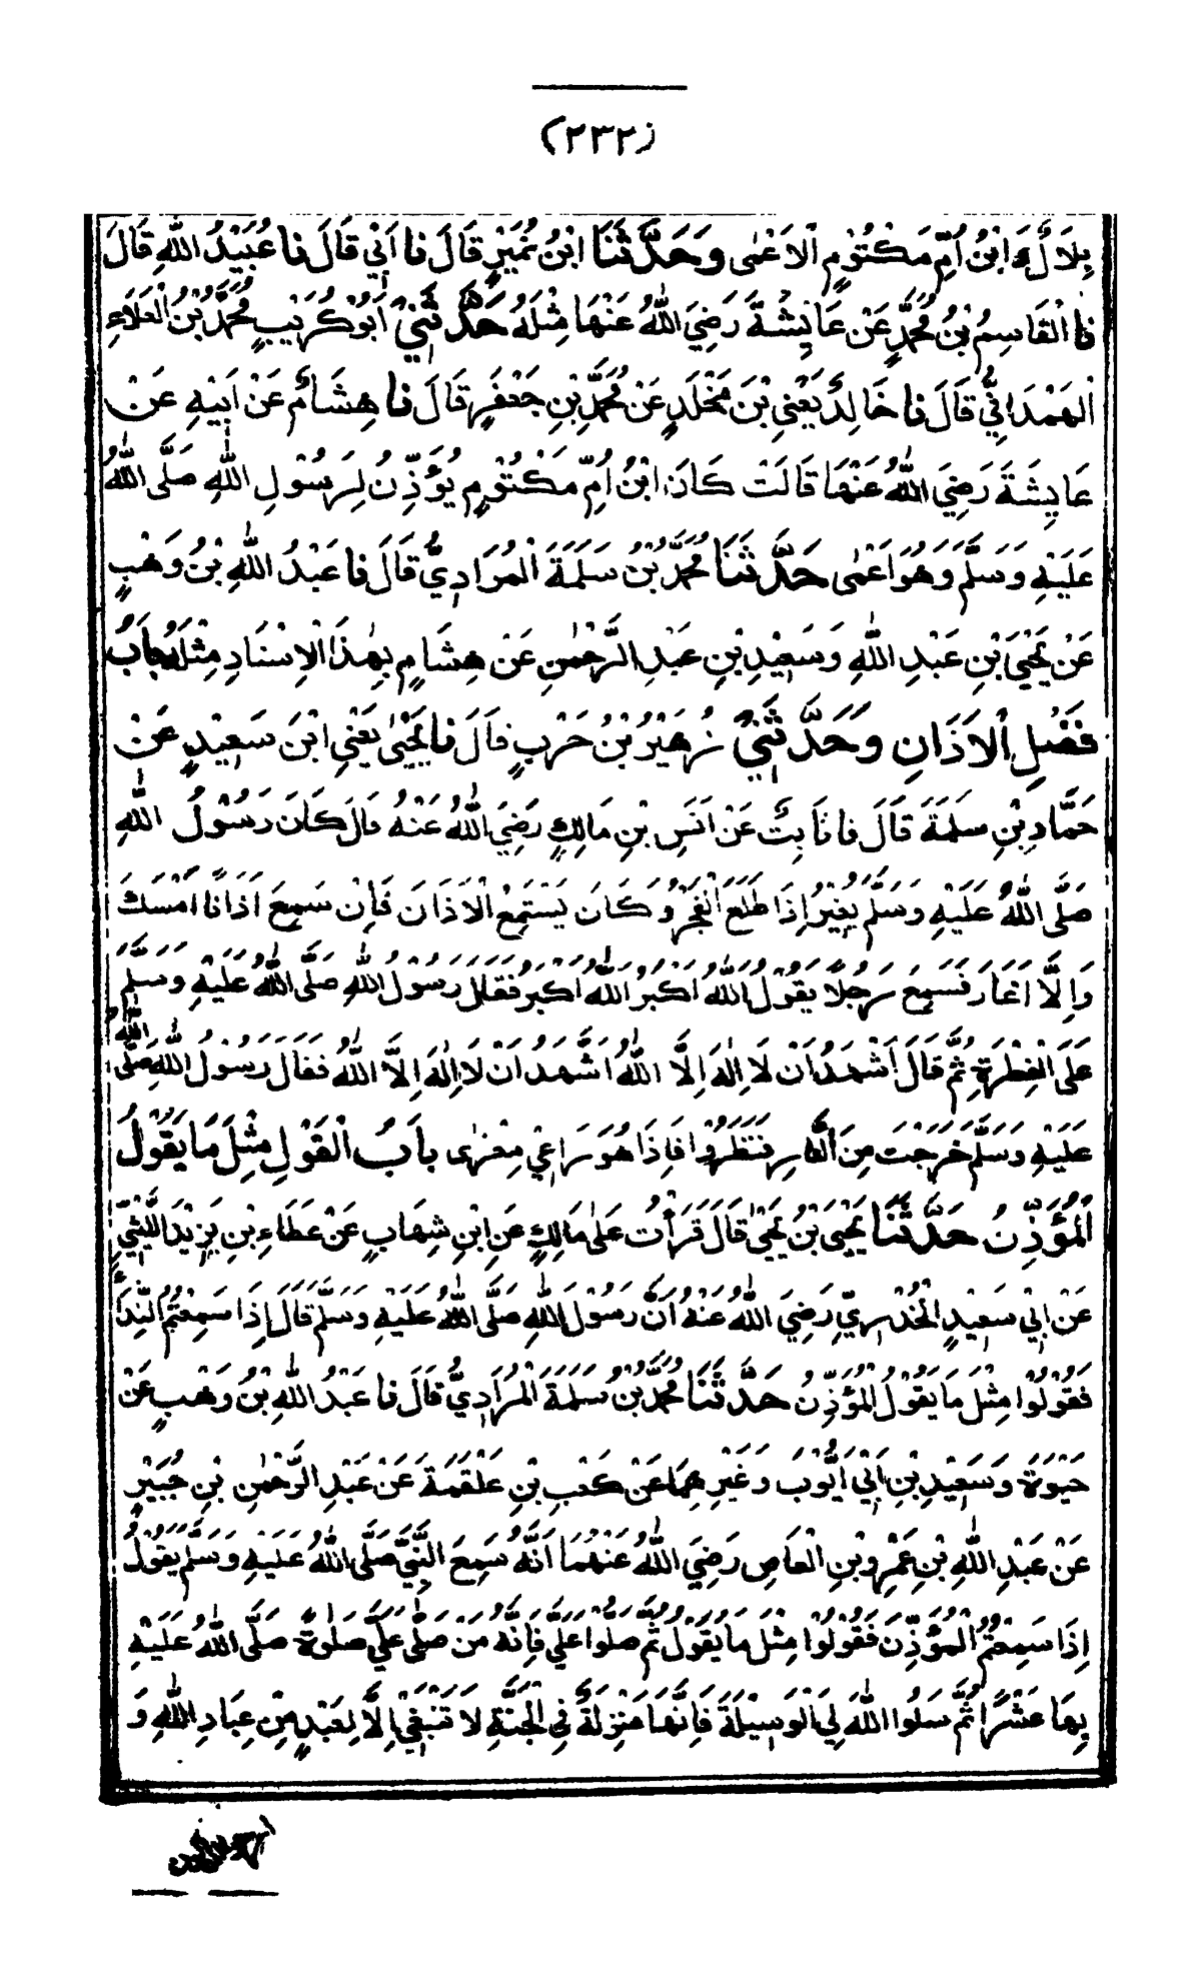 (٢٣٢)
بِلَالٌ وَابْنُ اُمِّ مَكْتُوْمٍ الْاَعْمٰى وَحَدَّثَنَا ابْنُ نُمَيْرٍ قَالَ نا اَبِيْ قَالَ نا عُبَيْدُ اللهِ قَالَ
نا الْقَاسِمُ بْنُ مُحَمَّدٍ عَنْ عَايِشَةَ رَضِيَ اللهُ عَنْهَا مِثْلَهُ حَدَّثَنِيْ اَبُوْ كُرَيْبٍ مُحَمَّدُ بْنُ الْعَلَاءِ
الْهَمْدَانِيُّ قَالَ نا خَالِدٌ يَعْنِي بْنَ مَخْلَدٍ عَنْ مُحَمَّدِ بْنِ جَعْفَرٍ قَالَ نا هِشَامٌ عَنْ اَبِيْهِ عَنْ
عَايِشَةَ رَضِيَ اللهُ عَنْهَا قَالَتْ كَانَ ابْنُ اُمِّ مَكْتُوْمٍ يُؤَذِّنُ لِرَسُوْلِ اللهِ صَلَّى اللهُ
عَلَيْهِ وَسَلَّمَ وَهُوَ اَعْمٰى حَدَّثَنَا مُحَمَّدُ بْنُ سَلَمَةَ الْمُرَادِيُّ قَالَ نا عَبْدُ اللهِ بْنُ وَهْبٍ
عَنْ يَحْيَى بْنِ عَبْدِ اللهِ وَسَعِيْدِ بْنِ عَبْدِ الرَّحْمٰنِ عَنْ هِشَامٍ بِهٰذَا الْاِسْنَادِ مِثْلَهُ بَابُ
فَضْلِ الْاَذَانِ وَحَدَّثَنِيْ زُهَيْرُ بْنُ حَرْبٍ قَالَ نا يَحْيٰى يَعْنِي ابْنَ سَعِيْدٍ عَنْ
حَمَّادِ بْنِ سَلَمَةَ قَالَ نا ثَابِتٌ عَنْ اَنَسِ بْنِ مَالِكٍ رَضِيَ اللهُ عَنْهُ قَالَ كَانَ رَسُوْلُ اللهِ
صَلَّى اللهُ عَلَيْهِ وَسَلَّمَ يُغِيْرُ اِذَا طَلَعَ الْفَجْرُ وَكَانَ يَسْتَمِعُ الْاَذَانَ فَاِنْ سَمِعَ اَذَانًا اَمْسَكَ
وَاِلَّا اَغَارَ فَسَمِعَ رَجُلًا يَقُوْلُ اللهُ اَكْبَرُ اللهُ اَكْبَرُ فَقَالَ رَسُوْلُ اللهِ صَلَّى اللهُ عَلَيْهِ وَسَلَّمَ
عَلَى الْفِطْرَةِ ثُمَّ قَالَ اَشْهَدُ اَنْ لَا اِلٰهَ اِلَّا اللهُ اَشْهَدُ اَنْ لَا اِلٰهَ اِلَّا اللهُ فَقَالَ رَسُوْلُ اللهِ صَلَّى اللهُ
عَلَيْهِ وَسَلَّمَ خَرَجْتَ مِنَ النَّارِ فَنَظَرُوْا فَاِذَا هُوَ رَاعِيْ مِعْزٰى بَابُ الْقَوْلِ مِثْلَ مَا يَقُوْلُ
الْمُؤَذِّنُ حَدَّثَنَا يَحْيَى بْنُ يَحْيٰى قَالَ قَرَأْتُ عَلٰى مَالِكٍ عَنِ ابْنِ شِهَابٍ عَنْ عَطَاءِ بْنِ يَزِيْدَ اللَّيْثِيِّ
عَنْ اَبِيْ سَعِيْدٍ الْخُدْرِيِّ رَضِيَ اللهُ عَنْهُ اَنَّ رَسُوْلَ اللهِ صَلَّى اللهُ عَلَيْهِ وَسَلَّمَ قَالَ اِذَا سَمِعْتُمُ النِّدَاءَ
فَقُوْلُوْا مِثْلَ مَا يَقُوْلُ الْمُؤَذِّنُ حَدَّثَنَا مُحَمَّدُ بْنُ سَلَمَةَ الْمُرَادِيُّ قَالَ نا عَبْدُ اللهِ بْنُ وَهْبٍ عَنْ
حَيْوَةَ وَسَعِيْدِ بْنِ اَبِيْ اَيُّوْبَ وَغَيْرِهِمَا عَنْ كَعْبِ بْنِ عَلْقَمَةَ عَنْ عَبْدِ الرَّحْمٰنِ بْنِ جُبَيْرٍ
عَنْ عَبْدِ اللهِ بْنِ عَمْرِو بْنِ الْعَاصِ رَضِيَ اللهُ عَنْهُمَا اَنَّهُ سَمِعَ النَّبِيَّ صَلَّى اللهُ عَلَيْهِ وَسَلَّمَ يَقُوْلُ
اِذَا سَمِعْتُمُ الْمُؤَذِّنَ فَقُوْلُوْا مِثْلَ مَا يَقُوْلُ ثُمَّ صَلُّوْا عَلَيَّ فَاِنَّهُ مَنْ صَلّٰى عَلَيَّ صَلٰوةً صَلَّى اللهُ عَلَيْهِ
بِهَا عَشْرًا ثُمَّ سَلُوا اللهَ لِيَ الْوَسِيْلَةَ فَاِنَّهَا مَنْزِلَةٌ فِي الْجَنَّةِ لَا تَنْبَغِيْ اِلَّا لِعَبْدٍ مِّنْ عِبَادِ اللهِ وَ